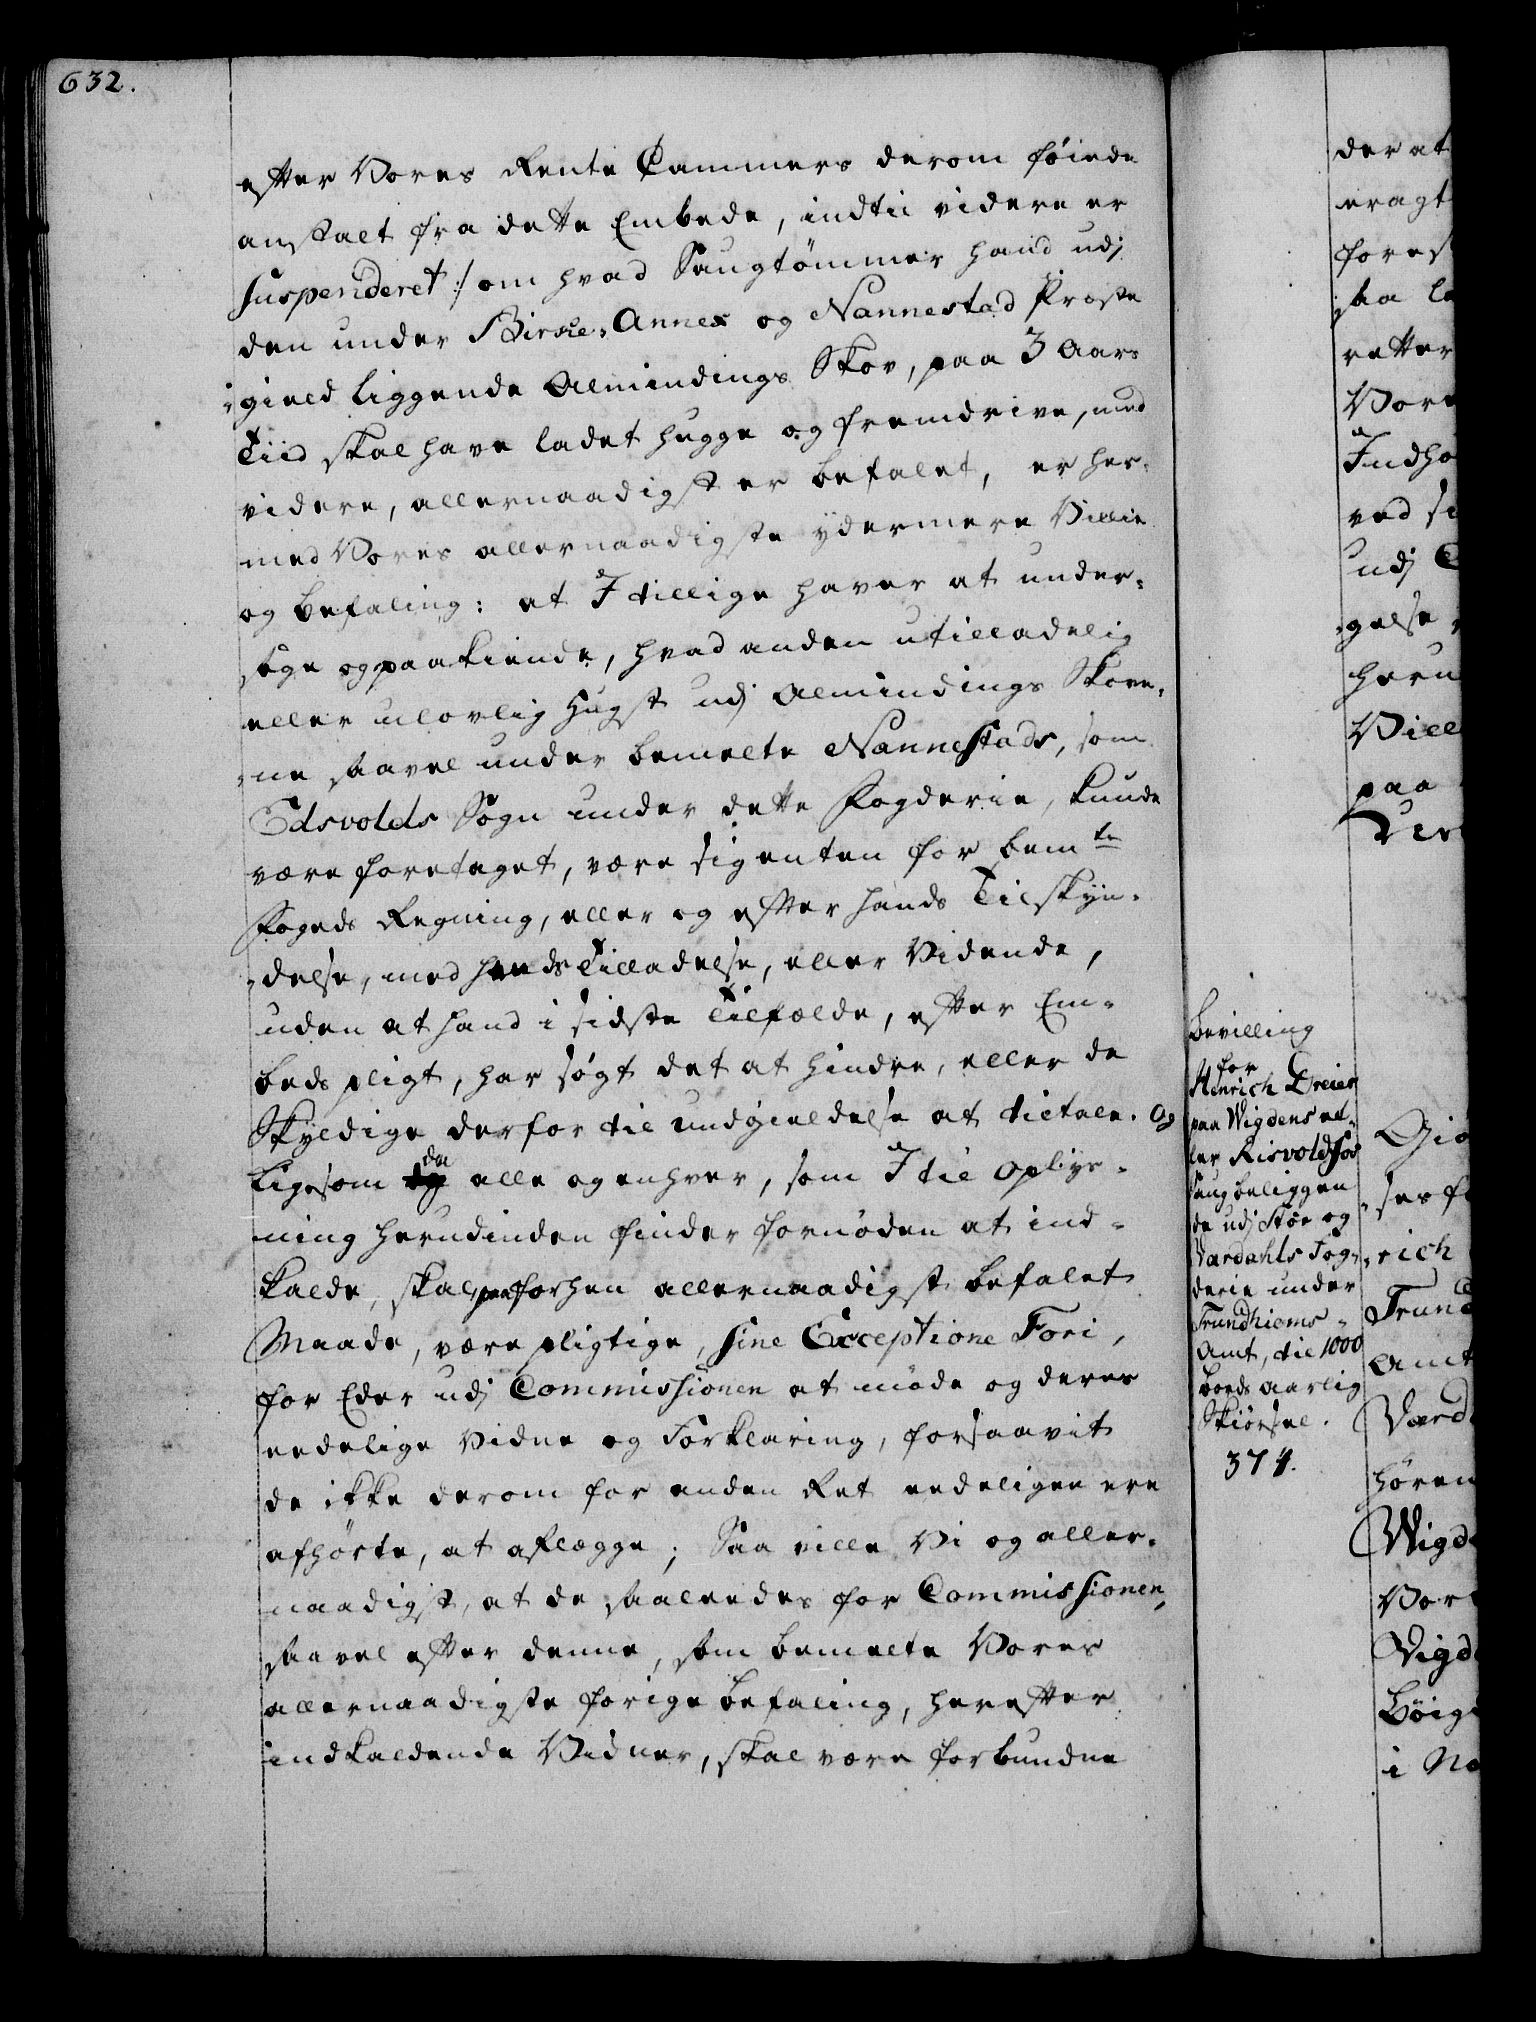 632.
efter Vores Rente Cammers derom föiede
anstalt fra dette Embede, indtil videre er
suspenderet :/ om hvad Saugtömmer hand udj
den under Birke-Annex og Nannestad Præste
-gield liggende Almindings Skov, paa 3 Aars
Tiid skal have ladet hugge og fremdrive, med
videre, allernaadigst er befalet, er her-
med Vores allernaadigste ydermere Villie
og befaling: at I tillige haver at under-
söge og paakiende, hvad anden utilladelig
eller ulovlig Hugst udj Almindings Skove-
-ne saavel under bemelte Nannestads, som
Edsvolds Sogn under dette Fogderie, kunde
være foretaget, være sig enten for bem.te
Fogeds Regning, eller og efter hands Tilskyn-
-delse, med hands Tilladelse, eller Vidende,
uden at hand i sidste Tilfælde, efter Em-
beds pligt, har søgt det at hindre, eller de
Skyldige derfor til undgieldelse at tiltale. Og
ligesom da alle og enhver, som I til Oplys-
ning herudinden finder fornöden at ind-
kalde, skal, paa forhen allernaadigst befalet
Maade, være pligtige, sine Exceptione Fori,
for Eder udj Commissionen at møde og deres
eedelige Vidne og Forklaring, forsaavit
de ikke derom for anden Ret eedeligen ere
afhörte, at aflægge; Saa ville Vi og aller-
naadigst, at de saaleedes for Commissionen,
saavel efter denne, som bemelte Vores
allernaadigste forige befaling, herefter
indkaldende Vidner, skal være forbundne
bevilling
for
Henrich Dreier
paa Wigdens el-
ler Risvoldfos
Saug beliggen
de udj Stör og
Værdahls Fog-
derie under
Trundhiems
Amt, til 1000
bords aarlig
Skiørsel.
374.
der at
eragt
forest
saa la
retter
Vore
Indho
ved si
udj
gelse
heru
Vill
paa
Giö
ses f
rich
Trund
Amt
Værd
hören
Wigd
Vor
Vigd
Böig
i No